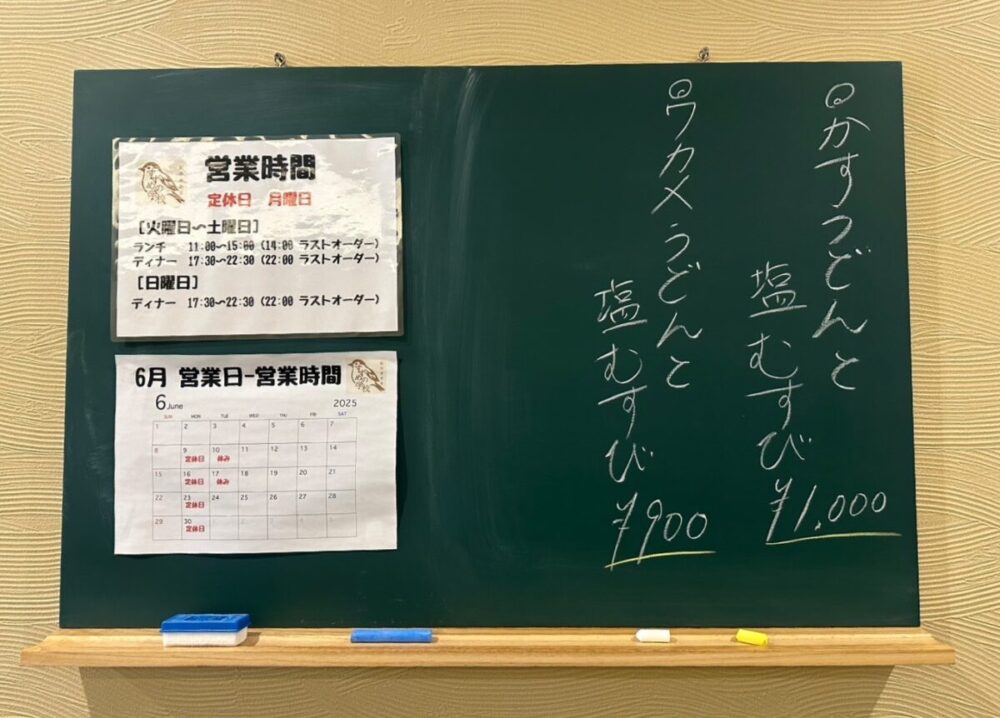 営業時間
定休日 月曜日
[火曜日〜土曜日]
ランチ 11:00〜15:00 (14:00 ラストオーダー)
ディナー 17:30〜22:30 (22:00 ラストオーダー)
[日曜日]
ディナー 17:30〜22:30 (22:00 ラストオーダー)
6月 営業日-営業時間
6 June 2025
SUN MON TUE WED THU FRI SAT
1 2 3 4 5 6 7
8 9 10 11 12 13 14
定休日 休み
15 16 17 18 19 20 21
定休日 休み
22 23 24 25 26 27 28
定休日
29 30
定休日
◎かすうどんと
塩むすび ¥1,000
◎ワカメうどんと
塩むすび ¥900